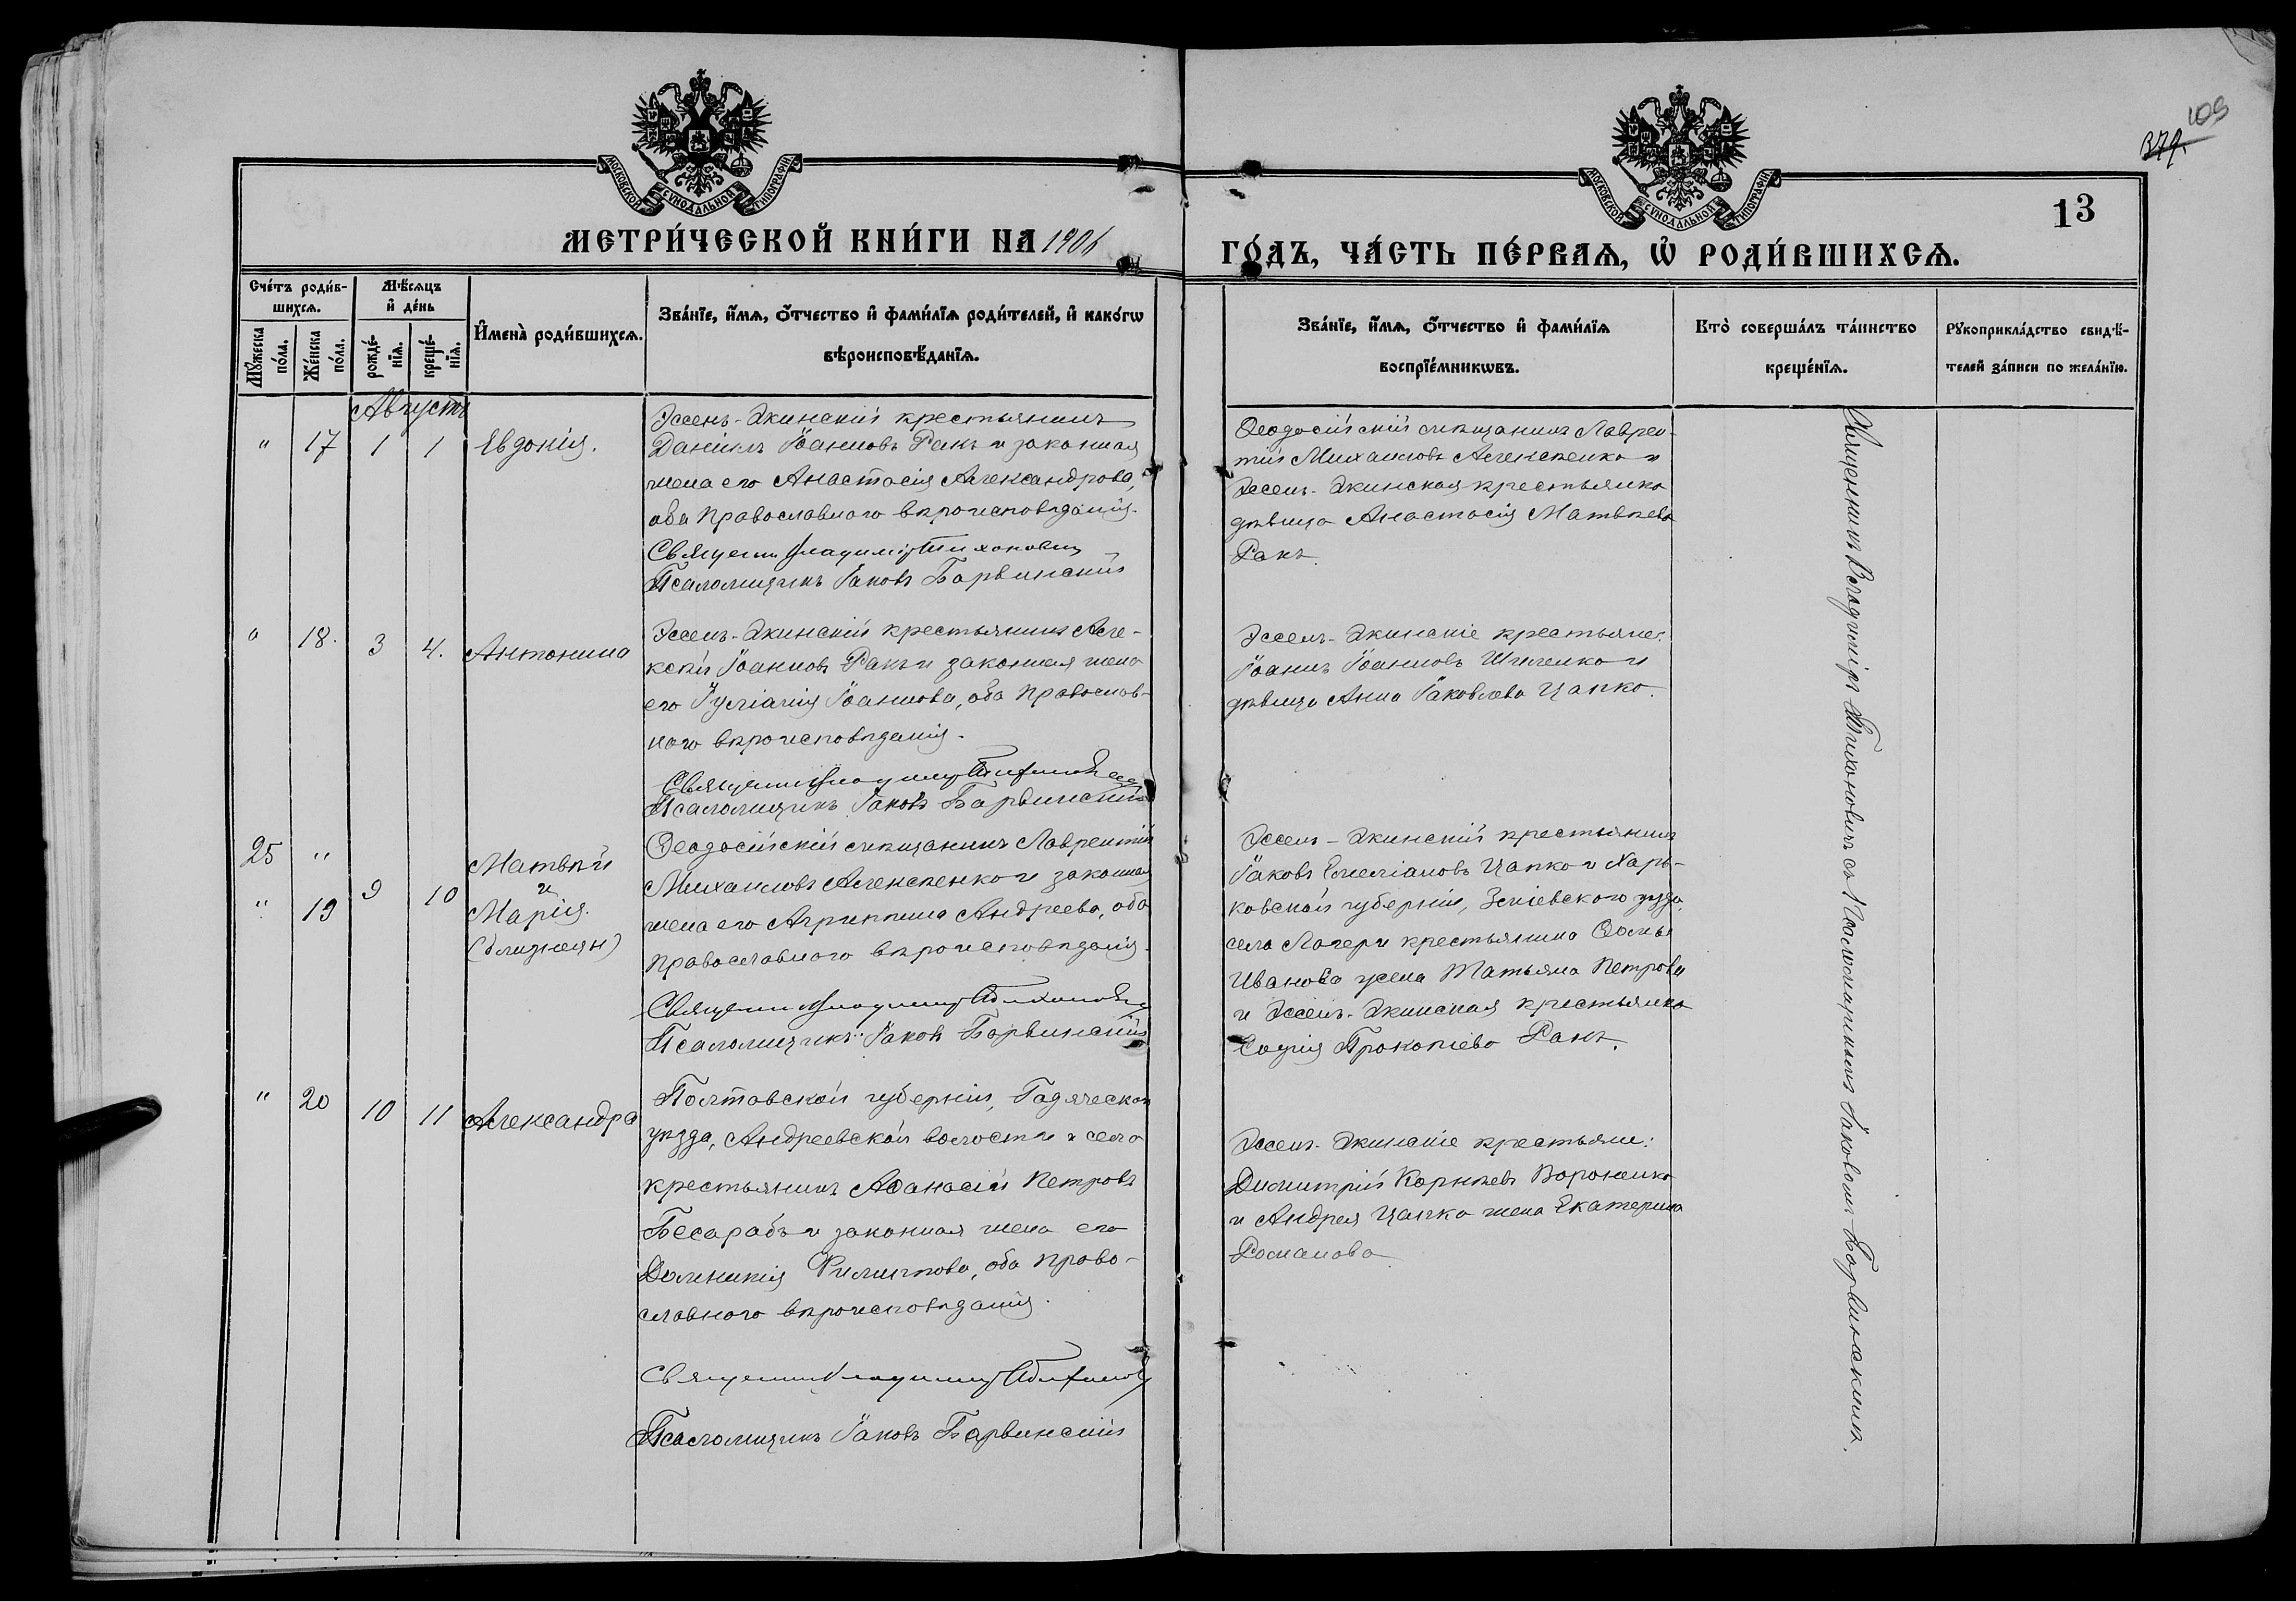 109
379.
МОСКОВСКОЙ СѴНОДАЛЬНОЙ ТИПОГРАФІИ
МОСКОВСКОЙ СѴНОДАЛЬНОЙ ТИПОГРАФІИ
13
МЕТРИ́ЧЕСКОЙ КНИ́ГИ НА 1906
ГО́ДЪ, ЧА́СТЬ ПЕ́РВАѦ, Ѡ҆ РОДИ́ВШИХСѦ.
Сче́тъ роди́в-
шихсѧ.
Мꙋ́жеска по́ла.
Же́нска по́ла.
Мѣ́сѧцъ
и҆ де́нь
рожде́-
нїѧ.
креще́-
нїѧ.
И҆мена̀ роди́вшихсѧ.
Зва́нїе, и҆́мѧ, ѻ҆́тчество и҆ фами́лїѧ роди́телей, и҆ како́гѡ
вѣроисповѣ́данїѧ.
Зва́нїе, и҆́мѧ, ѻ҆́тчество и҆ фами́лїѧ
воспрїе́мникѡвъ.
Кто̀ соверша́лъ та́инство
креще́нїѧ.
Рꙋкоприкла́дство свидѣ́-
телей за́писи по жела́нїю.
Августъ
" 17 1 1 Евдокія.
Эссенъ-Экинскій крестьянинъ
Даніилъ Іоанновъ Ракъ и законная
жена его Анастасія Александрова,
оба православнаго вѣроисповѣданія.
Священн. Владиміръ Тихоновичъ
Псаломщикъ Іаковъ Барвинскій
Ѳеодосійскій мѣщанинъ Лаврен-
тій Михаиловъ Алексѣенко и
Эссенъ-Экинская крестьянка
дѣвица Анастасія Матвѣева
Ракъ.
" 18. 3 4. Антонина
Эссенъ-Экинскій крестьянинъ Але-
ксѣй Іоанновъ Ракъ и законная жена
его Іуліанія Іоаннова, оба православ-
наго вѣроисповѣданія.
Священн. Владиміръ Тихоновичъ
Псаломщикъ Іаковъ Барвинскій
Эссенъ-Экинскіе крестьяне:
Іоаннъ Іоанновъ Шиленко и
дѣвица Анна Іаковлева Цапко.
25 "
" 19
9 10
Матвѣй
и
Марія.
(близнецы)
Ѳеодосійскій мѣщанинъ Лаврентій
Михаиловъ Алексѣенко и законная
жена его Агриппина Андреева, оба
православнаго вѣроисповѣданія.
Священн. Владиміръ Тихоновичъ
Псаломщикъ Іаковъ Барвинскій
Эссенъ-Экинскій крестьянинъ
Іаковъ Емеліановъ Цапко и Харь-
ковской губерніи, Зміевского уѣзда,
села Лагери крестьянина Ѳомы
Иванова жена Татьяна Петрова
и Эссенъ-Экинская крестьянка
Софія Прокопіева Ракъ.
" 20 10 11 Александра
Полтавской губерніи, Гадяческаго
уѣзда, Андреевской волости и села
крестьянинъ Аѳанасій Петровъ
Бесарабъ и законная жена его
Домникія Филиппова, оба право-
славного вѣроисповѣданія.
Священн. Владиміръ Тихоновичъ
Псаломщикъ Іаковъ Барвинскій
Эссенъ-Экинскіе крестьяне:
Димитрій Корнѣевъ Вороненко
и Андрея Цапко жена Екатерина
Романова
Священникъ Владиміръ Тихоновичъ съ Псаломщикомъ Іаковомъ Барвинскимъ.